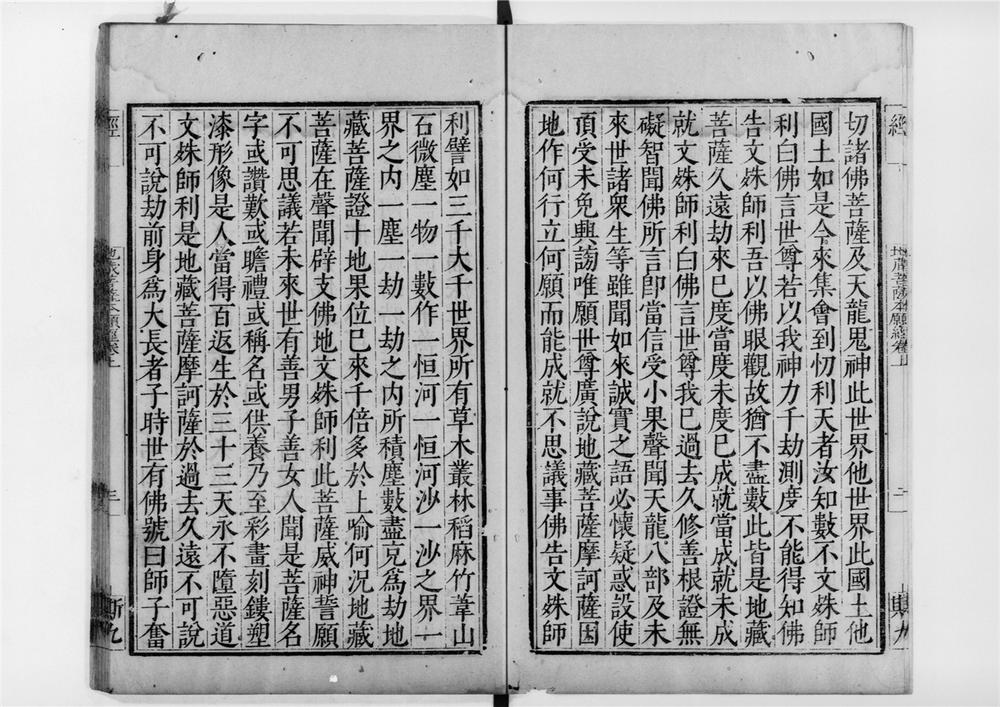 切諸佛菩薩及天龍鬼神此世界他世界此國土他
國土如是今來集會到忉利天者汝知數不文殊師
利白佛言世尊若以我神力千劫測度不能得知佛
告文殊師利吾以佛眼觀故猶不盡數此皆是地藏
菩薩久遠劫來已度當度未度已成就當成就未成
就文殊師利白佛言世尊我已過去久修善根證無
礙智聞佛所言即當信受小果聲聞天龍八部及未
來世諸衆生等雖聞如來誠實之語必懷疑惑設使
頂受未免興謗唯願世尊廣說地藏菩薩摩訶薩因
地作何行立何願而能成就不思議事佛告文殊師
利譬如三千大千世界所有草木叢林稻麻竹葦山
石微塵一物一數作一恒河一恒河沙一沙之界一
界之內一塵一劫一劫之內所積塵數盡充爲劫地
藏菩薩證十地果位已來千倍多於上喻何況地藏
菩薩在聲聞辟支佛地文殊師利此菩薩威神誓願
不可思議若未來世有善男子善女人聞是菩薩名
字或讚歎或瞻禮或稱名或供養乃至彩畫刻鏤塑
漆形像是人當得百返生於三十三天永不墮惡道
文殊師利是地藏菩薩摩訶薩於過去久遠不可說
不可說劫前身爲大長者子時世有佛號曰師子奮
經
地藏菩薩本願經卷上
經
斯九